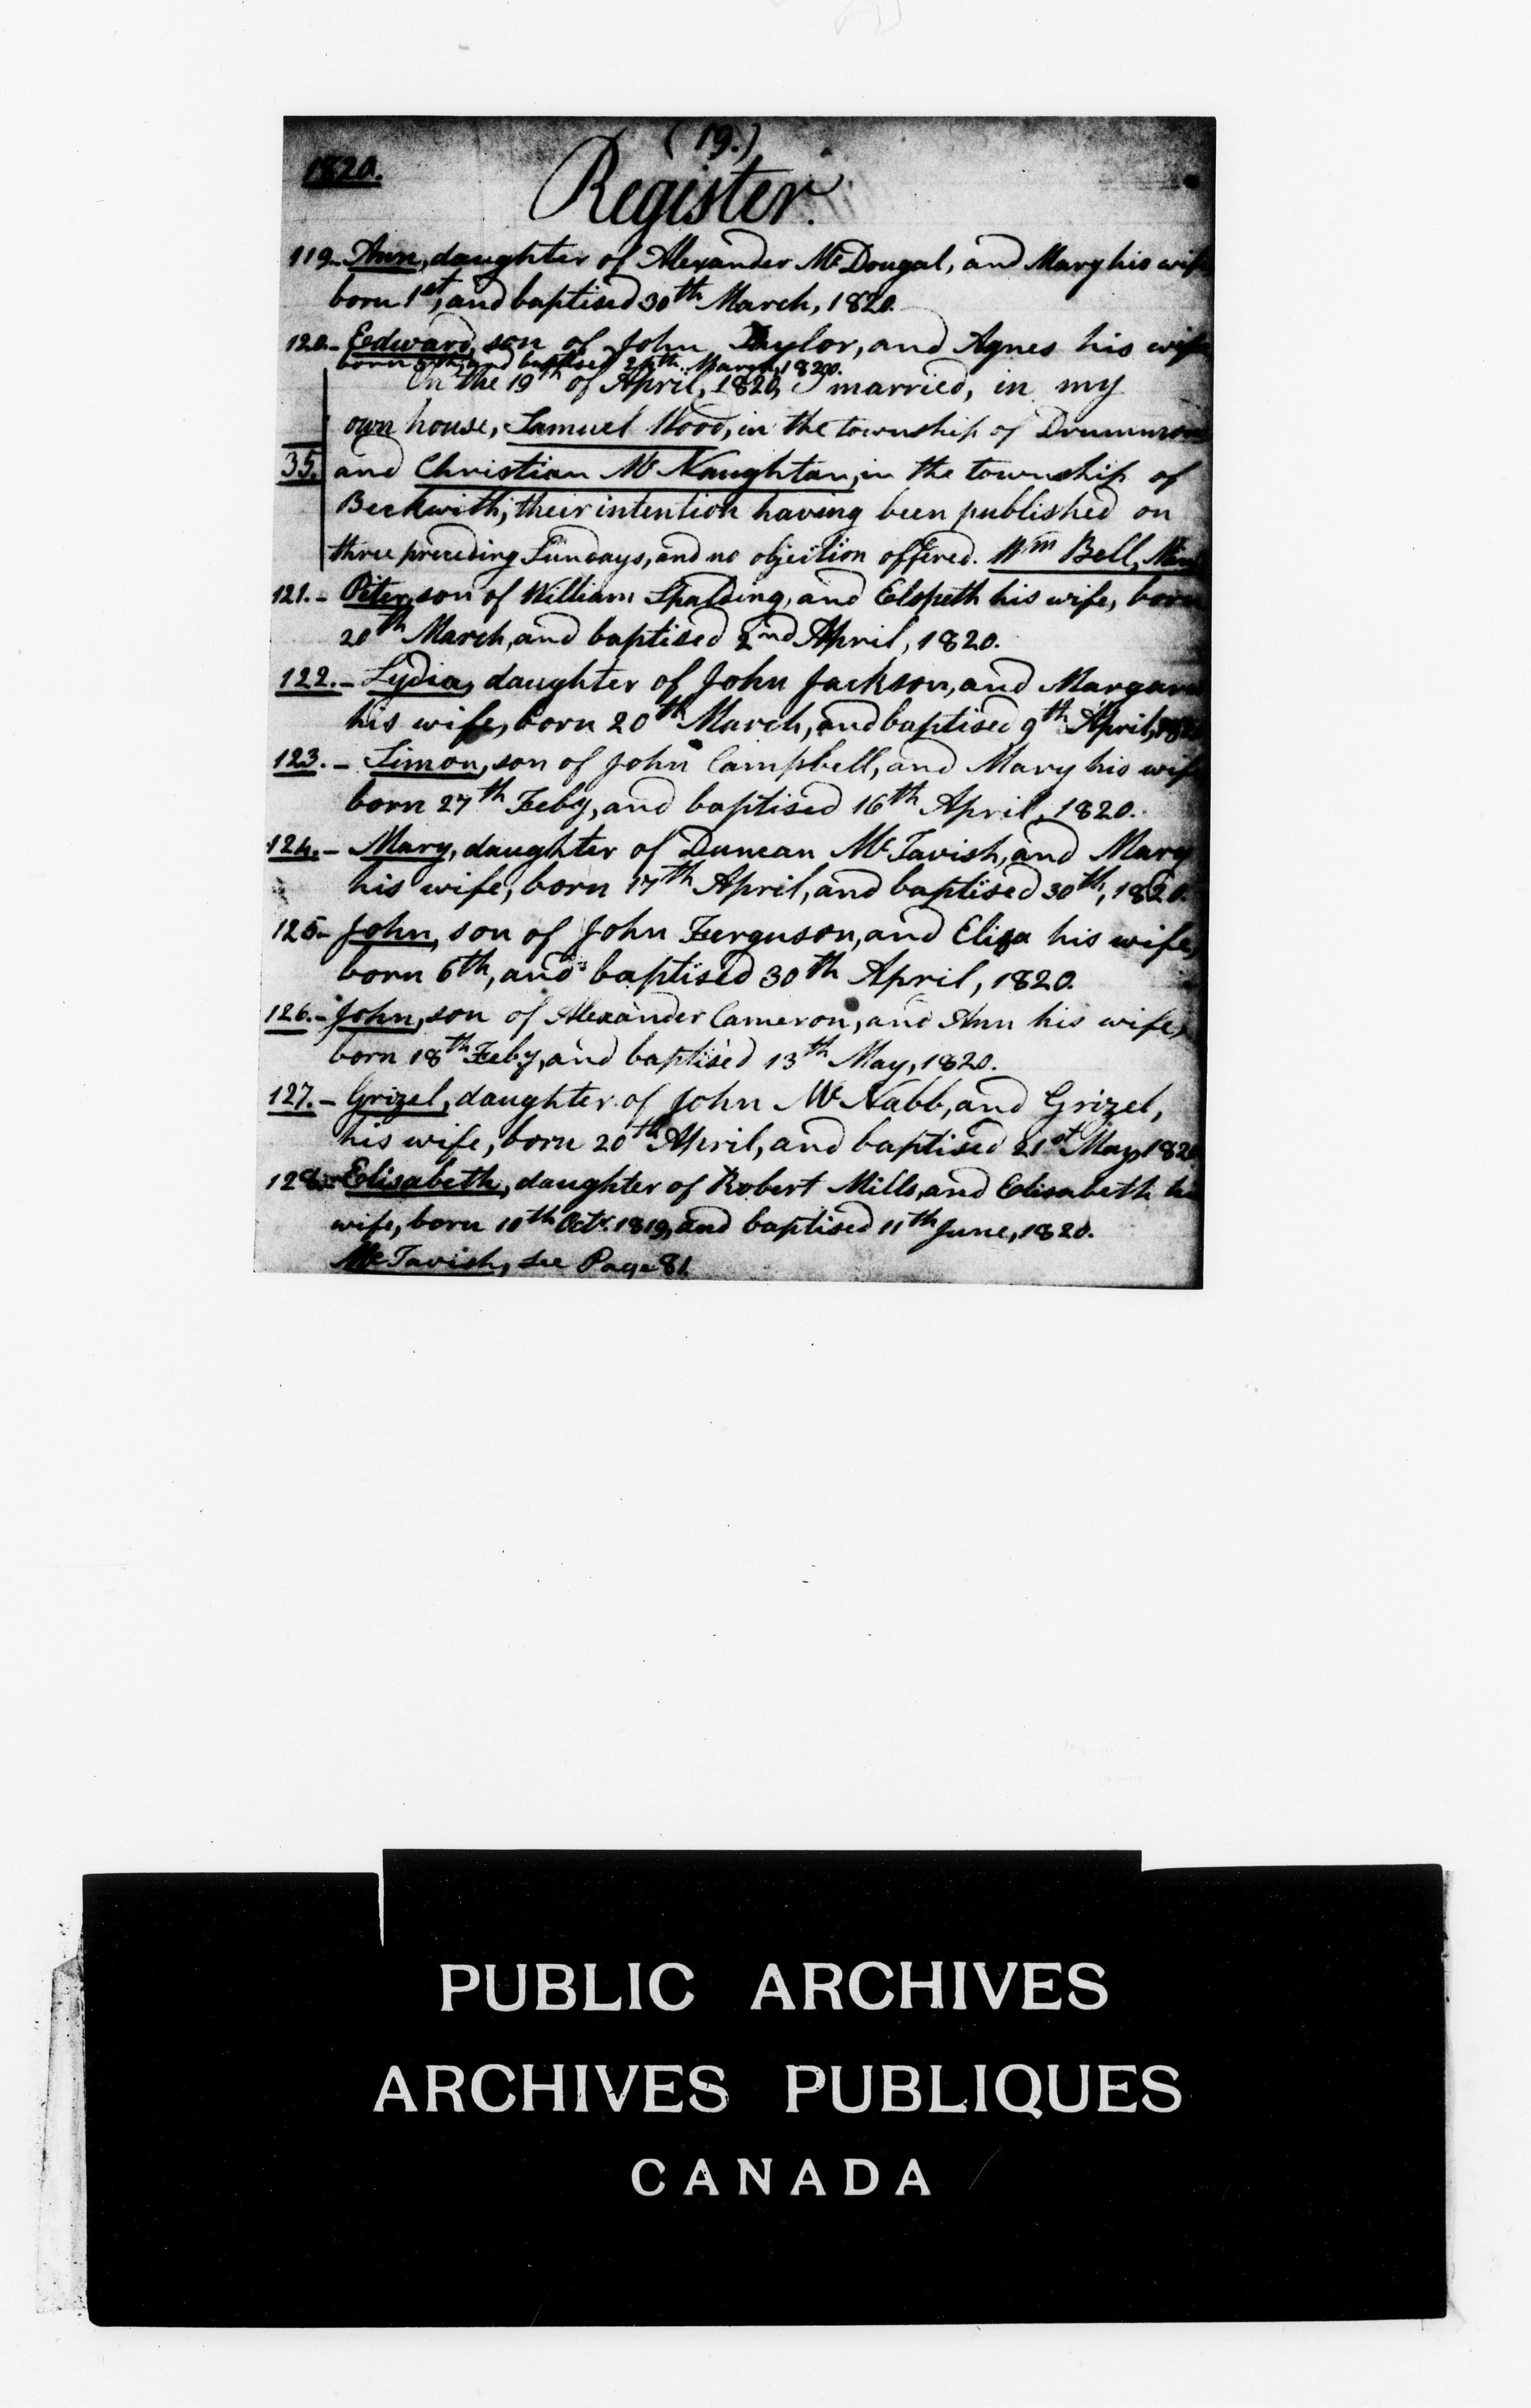 (19.)
1820.
Register.
119.- Ann, daughter of Alexander McDougal, and Mary his wife
born 1st, and baptised 30th March, 1820.
120.- Eedward, son of John Taylor, and Agnes his wife
born and baptised March, 1820.
On the 19th of April, 1820, I married, in my
own house, Samuel Wood, in the township of Drummond
35. and Christian McNaughtan, in the township of
Beckwith; their intention having been published on
three preceding Sundays, and no objection offered. Wm Bell, Min
121.- Peter, son of William Spalding, and Elspeth his wife, born
20th March, and baptised 2nd April, 1820.
122.- Lydia, daughter of John Jackson, and Margaret
his wife, born 20th March, and baptised 9th April, 1820
123.- Simon, son of John Campbell, and Mary his wife
born 27th Feby, and baptised 16th April, 1820.
124.- Mary, daughter of Duncan McTavish, and Mary
his wife, born 17th April, and baptised 30th, 1820.
125- John, son of John Ferguson, and Eliza his wife,
born 6th, and baptised 30th April, 1820.
126.- John, son of Alexander Cameron, and Ann his wife,
born 18th Feby, and baptised 13th May, 1820.
127.- Grizel, daughter of John McNabb, and Grizel,
his wife, born 20th April, and baptised 21st May, 1820
128.- Elisabeth, daughter of Robert Mills, and Elisabeth his
wife, born 10th Octr. 1819, and baptised 11th June, 1820.
McTavish, see Page 81.
PUBLIC ARCHIVES
ARCHIVES PUBLIQUES
CANADA